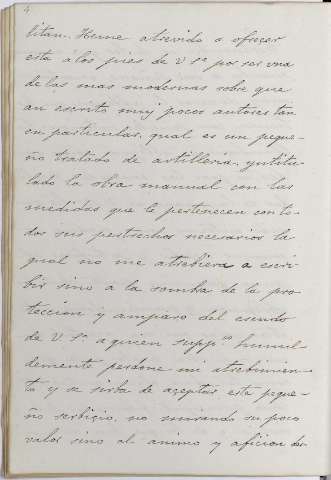 4
litan. Heme atrevido a ofrecer
esta á los pies de V. Sª por ser una
de las mas modernas sobre que
an escrito muy pocos autores tan
en particular, qual es un peque-
ño tratado de artilleria, yntitu-
lado la obra manual con las
medidas que le pertenecen con to-
dos sus pertrechos necesarios la
qual no me atrebiera a escri-
bir sino a la sombra de la pro-
teccion y amparo del escudo
de V. Sª a quien suppco humil-
demente perdone mi atrebimien-
to y se sirba de açeptar este peque-
ño serbiçio, no mirando su poco
valor sino al animo y aficion